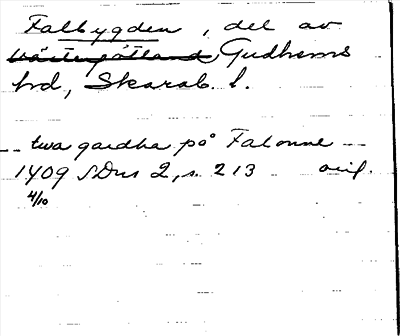 Falbygden, del av
Västergötland, Gudhems
hd, Skarab. l.
-- twa gardha på Falonne --
1409 SDns 2, s. 213 orig.
4/10